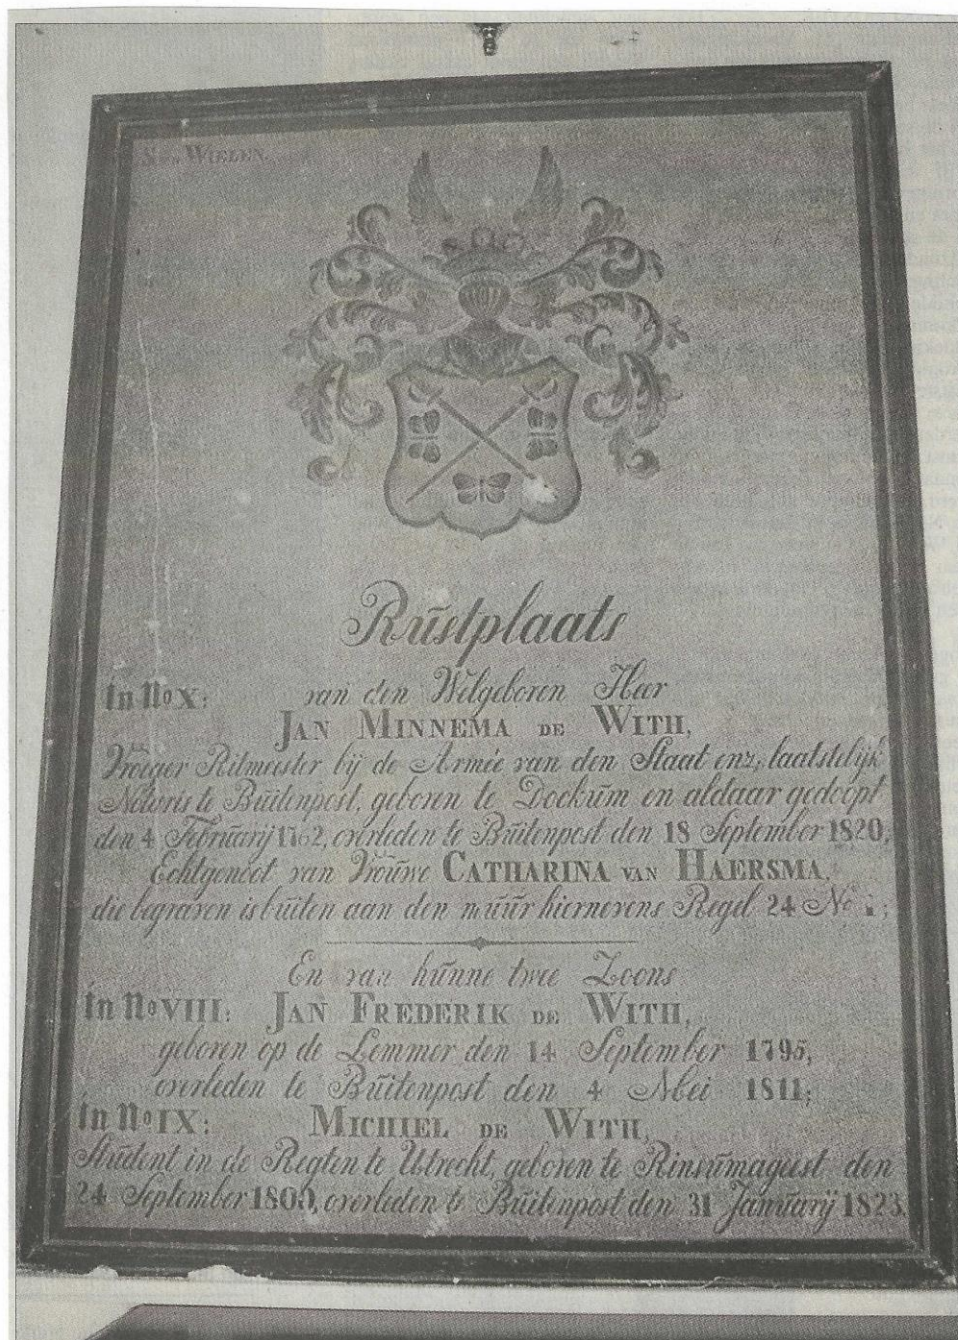 WIELEN.
Rustplaats
In No X: van den Welgeboren Heer
JAN MINNEMA DE WITH,
Vroeger Ritmeister bij de Armée van den Staat enz, laatstelijk
Notaris te Buitenpost, geboren te Dockum en aldaar gedoopt
den 4 Februarij 1762, overleden te Buitenpost den 18 September 1820,
Echtgenoot van Vrouwe CATHARINA VAN HAERSMA,
die begraven is buiten aan den muur hiernevens Regel 24 No
En van hunne twee Zoons
In No VIII: JAN FREDERIK DE WITH,
geboren op de Lemmer den 14 September 1795,
overleden te Buitenpost den 4 Mei 1811;
In No IX: MICHIEL DE WITH,
Student in de Regten te Utrecht, geboren te Rinsumageest den
24 September 1800, overleden te Buitenpost den 31 Januarij 1823.